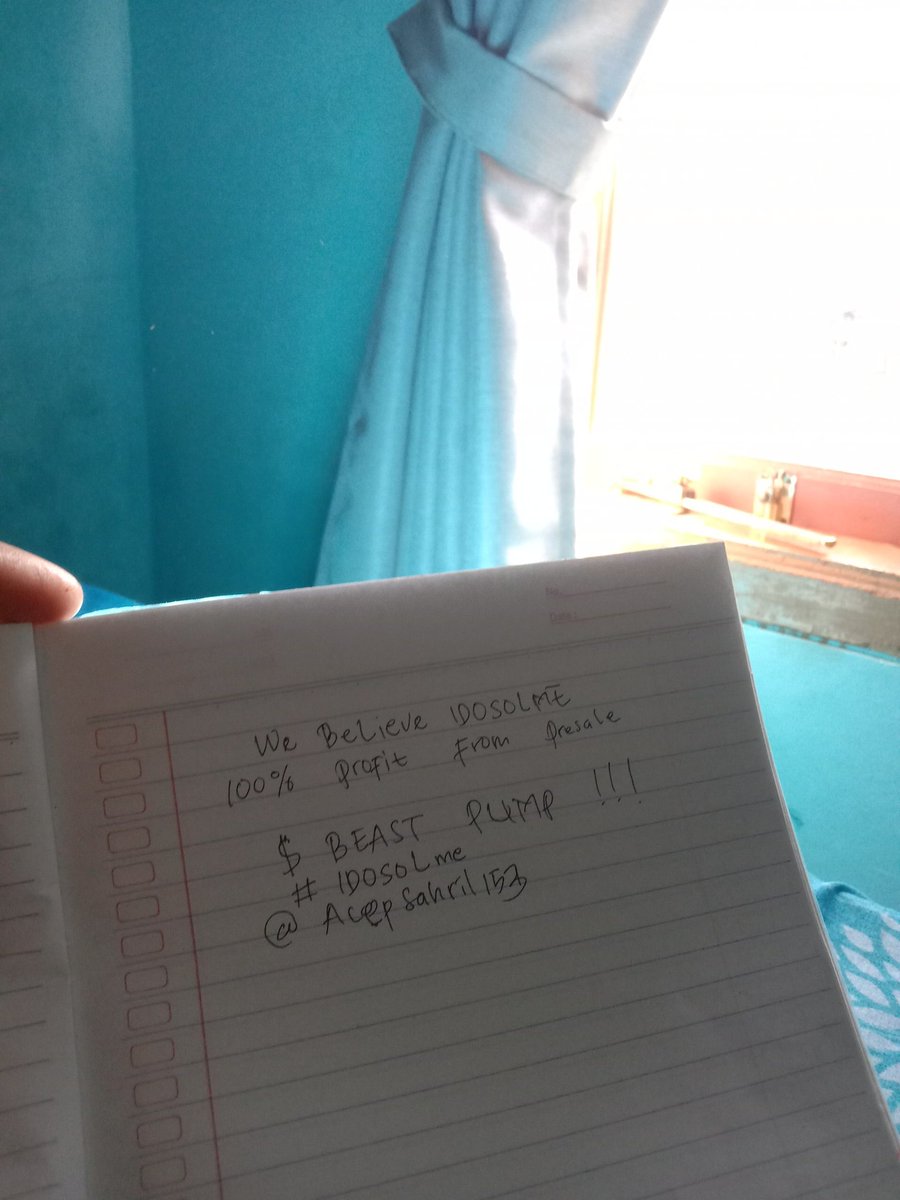 No
Date:
We Believe IDOSOLME
100% Profit From Presale
$ BEAST PUMP !!!
# IDOSOLme
@ Acepsahril153